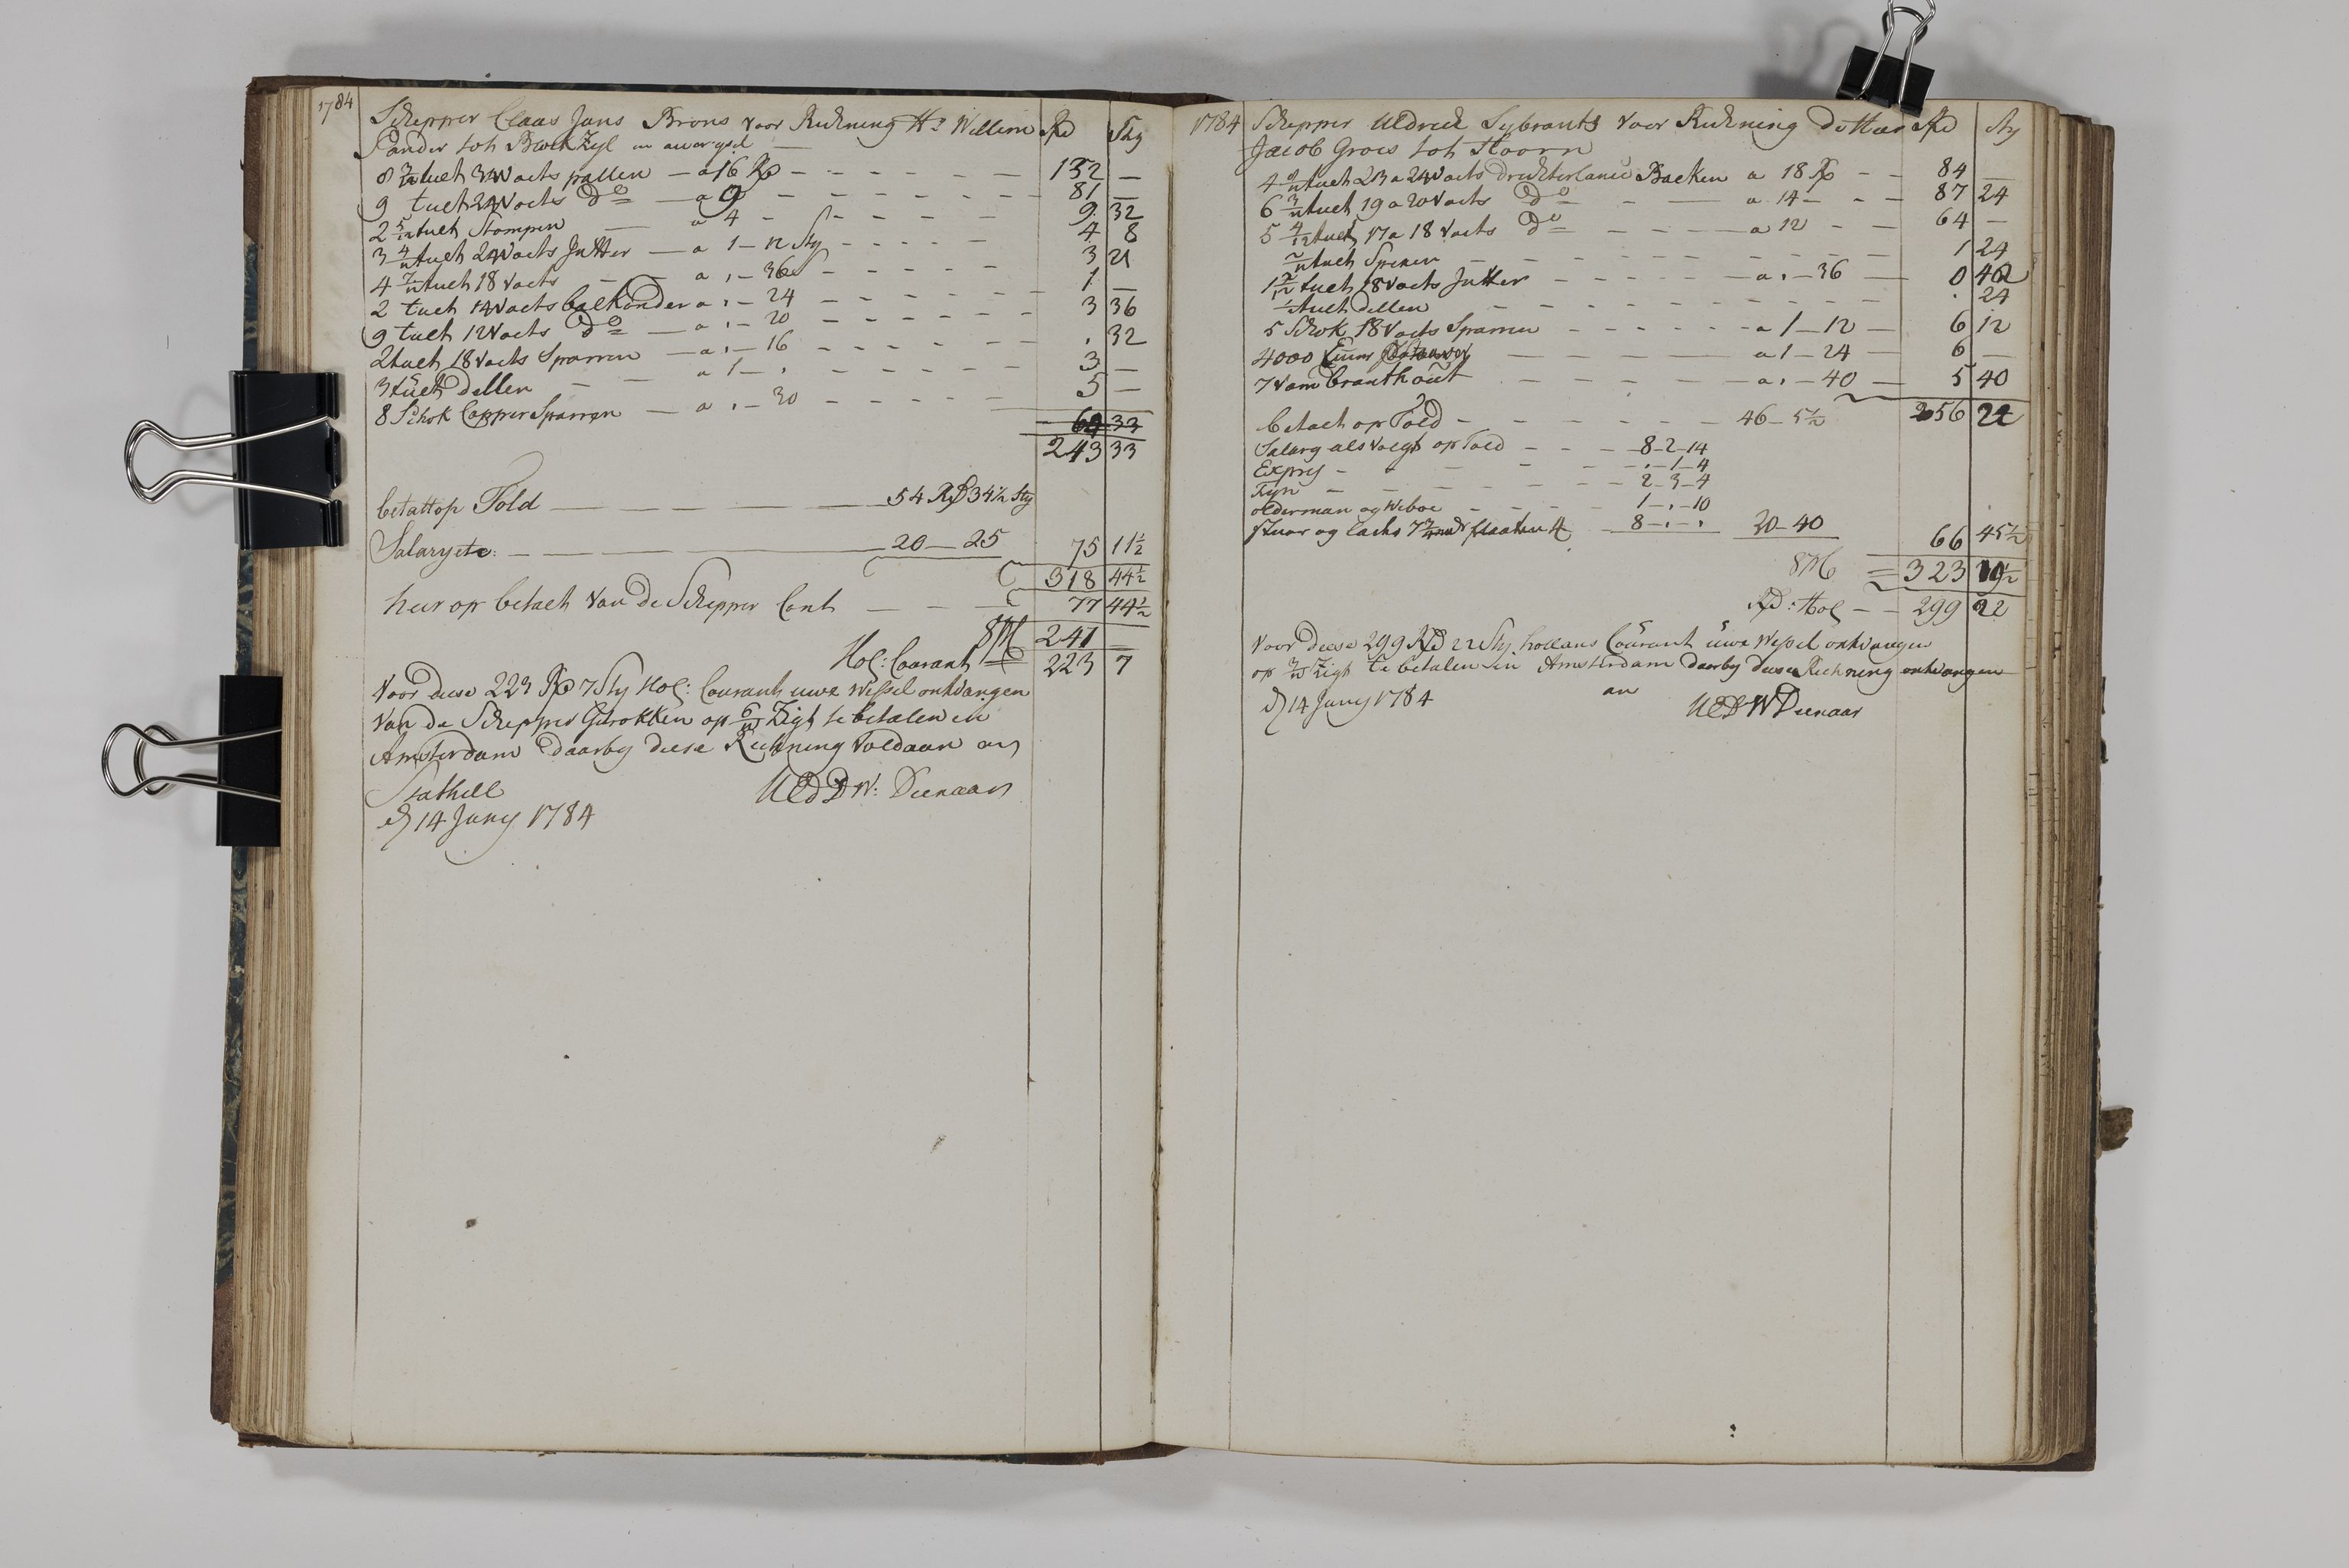 1784
Schipper Claas Jans Brons voor Rekning Hr Willem Rd Sty
Sander tot Blockzyl
8 3/12 tuelt 34 Voets pallen — a 16 Rd — 132 —
9 tuelt 24 Voets do — a 9 — 81 —
2 5/12 tuelt Stompen — a 4 — 9 32
3 4/12 tuelt 24 Voets Jutter — a 1 — 12 Sty — 4 8
4 7/12 tuelt 18 Voets — a . — 36 — 3 21
2 tuelt 14 Voets balkonder a . — 24 — 1 —
9 tuelt 12 Voets do — a . — 20 — 3 36
2 tuelt 18 Voets Sparren — a . — 16 — . 32
3 tuelt dellen — a 1 — . — 3 —
8 Schok Capper Sparren — a . — 30 — 5 —
243 33
betalt op Told — 54 Rd 34 1/2 Sty
Salary etc: — 20 — 25 75 11 1/2
318 44 1/2
hier op betaelt Van de Schipper Cont — 77 44 1/2
241 —
Hol: Courant 223 7
Voor diese 223 Rd 7 Sty Hol: Courant uwe Wessel ontvangen
Van de Schipper Getrokken op 6/m Zigt te betalen in
Amsterdam daarby diese Rekning Voldaan an
Stathell UEd DW: Dienaar
d 14 Juny 1784
1784 Schipper Uldrick Sybrants Voor Rekning de Heer Rd Sty
Jacob Groes tot Hoorn
4 8/12 tuelt 23 a 24 Voets Balken a 18 Rd — 84 —
6 3/12 tuelt 19 a 20 Voets do — a 14 — 87 24
5 4/12 tuelt 17 a 18 Voets do — a 12 — 64 —
tuelt Speren — 1 24
1 2/12 tuelt 18 Voets Jutter — a . — 36 — 0 42
tuelt dellen — . 24
5 Schok 18 Voets Sparren — a 1 — 12 — 6 12
4000 — a 1 — 24 — 6 —
7 Vam branthout — a . — 40 — 5 40
betaelt op Told — 46 — 5 1/2 256 22
Salary als Volgt op Told — 8 — 2 — 14
Expres — . — 1 — 4
Fyr — 2 — 3 — 4
olderman og Weboe — 1 — . — 10
8 — . — . 20 — 40 66 45 1/2
323 19 1/2
Rd: Hol — 299 22
Voor diese 299 Rd 22 Sty hollans Courant uwe Wessel ontvangen
op Zigt te betalen in Amsterdam daarby diese Rekning ontvangen
d 14 Juny 1784 an UED W Dienaar